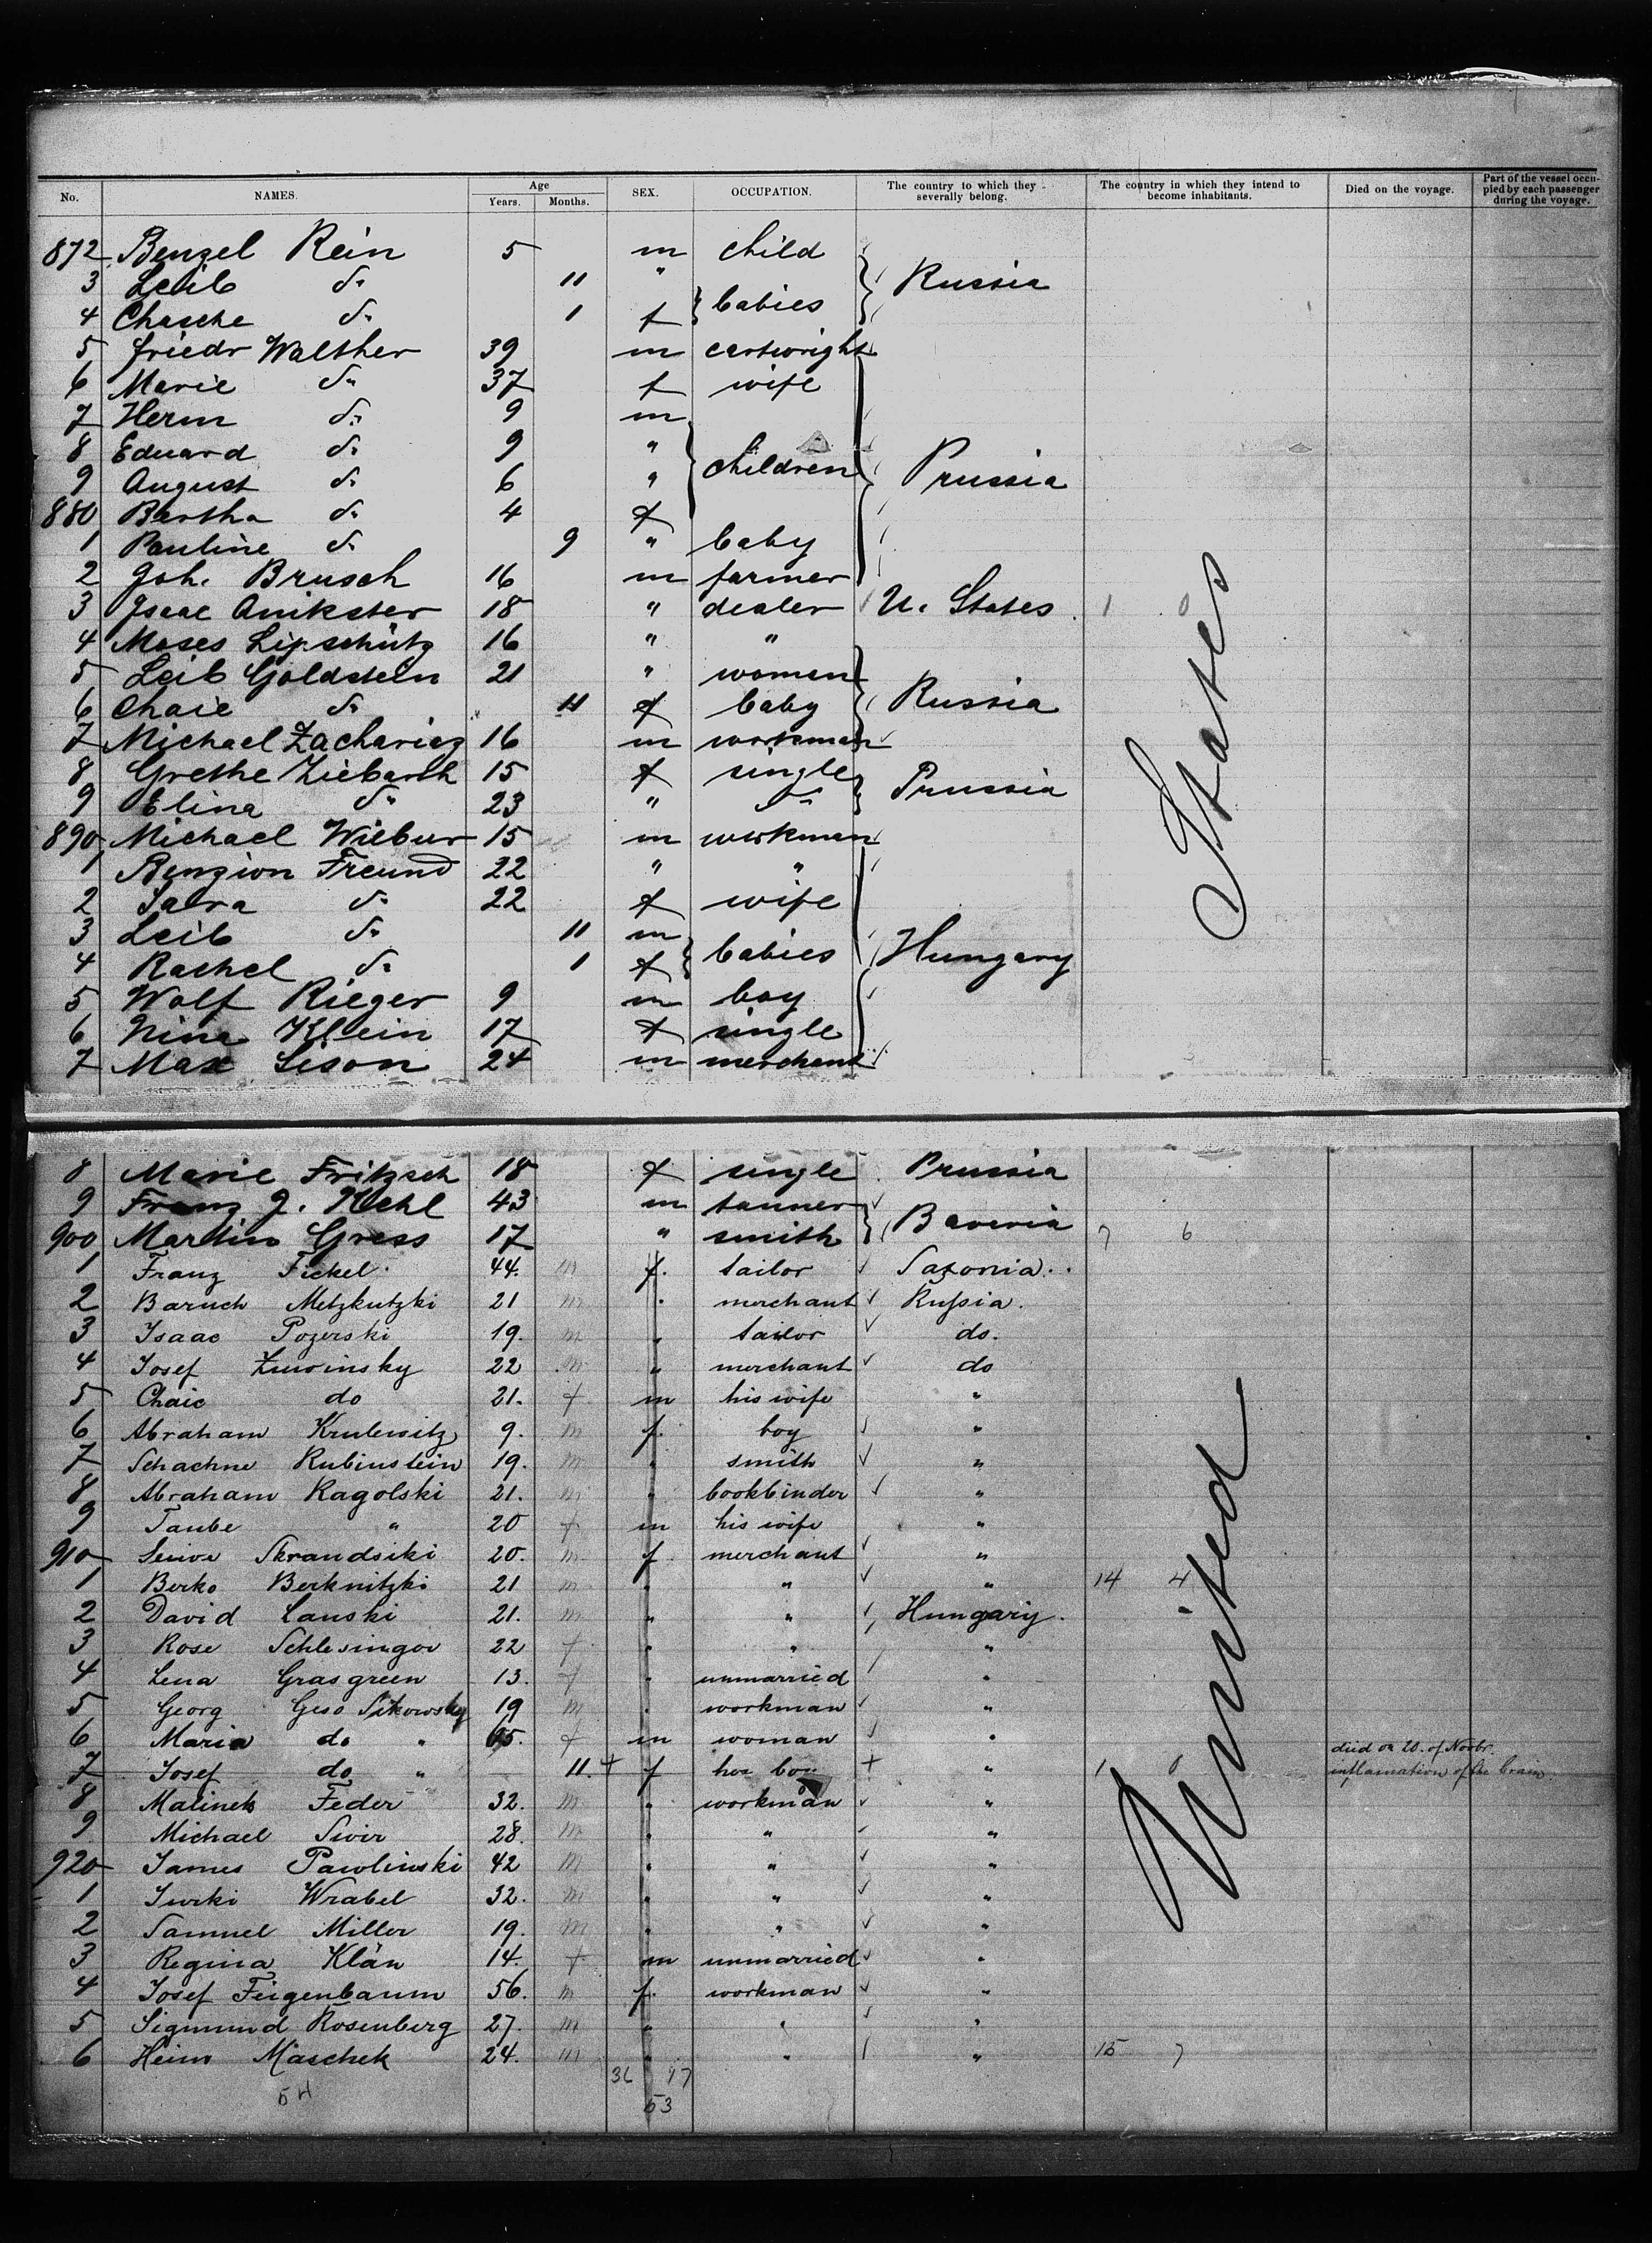 No. NAMES. Age Years. Months. SEX. OCCUPATION. The country to which they severally belong. The country in which they intend to become inhabitants. Died on the voyage. Part of the vessel occupied by each passenger during the voyage.
872 Benzel Rein 5 m child
3 Leib do 11 " babies Russia
4 Chasche do 1 f
5 Friedr Walther 39 m cartwright
6 Marie do 37 f wife
7 Herm do 9 m
8 Eduard do 9 " children Prussia
9 August do 6 "
880 Bertha do 4 f
1 Pauline do 9 " baby
2 Joh. Brusch 16 m farmer
3 Isaac Anikster 18 " dealer U. States 1 0
4 Moses Lipschütz 16 " "
5 Leib Goldstein 21 " woman
6 Chaie do 11 f baby Russia
7 Michael Zacharias 16 m workman
8 Grethe Ziebarth 15 f single Prussia
9 Elina do 23 " do
890 Michael Wilbur 15 m workman
1 Benzion Freund 22 " "
2 Sara do 22 f wife
3 Leib do 11 m babies Hungary
4 Rachel do 1 f
5 Wolf Rieger 9 m boy
6 Nina Klein 17 f single
7 Max Lison 24 m merchant
States
8 Marie Fritzsch 18 f single Prussia
9 Franz J. Kehl 43 m tanner Bavaria
900 Martin Gress 17 " smith 7 6
1 Franz Fickel 44. m f. tailor Saxonia.
2 Baruch Metzkutzki 21 m " merchant Russia.
3 Isaac Pozerski 19. m " tailor do.
4 Josef Zuwinsky 22 m " merchant do
5 Chaie do 21. f m his wife "
6 Abraham Krulewitz 9. m f. boy "
7 Schachne Rubinstein 19. m " smith "
8 Abraham Ragolski 21. m " bookbinder "
9 Taube " 20 f m his wife "
910 Skrandsiki 20. m f merchant "
1 Berko Berknitzki 21 m " " " 14 4
2 David Lanski 21. m " " Hungary.
3 Rose Schlesinger 22 f " " "
4 Lena Grasgreen 13. f " unmarried "
5 Georg Geso Sikowsky 19 m " workman "
6 Maria do " 65. f m woman "
7 Josef do " 11. + f her boy + " 1 0 died on 20. of Novbr. inflamation of the brain
8 Malinek Feder 32. m " workman "
9 Michael Swir 28. m " " "
920 James Pawlinski 42 m " " "
1 Jurki Wrabel 32. m " " "
2 Samuel Miller 19. m " " "
3 Regina Klän 14. f m unmarried "
4 Josef Feigenbaum 56. m f. workman "
5 Sigmund Rosenberg 27. m " " "
6 Heim Maschek 24. m " " " 15 7
United
54 36 17
53